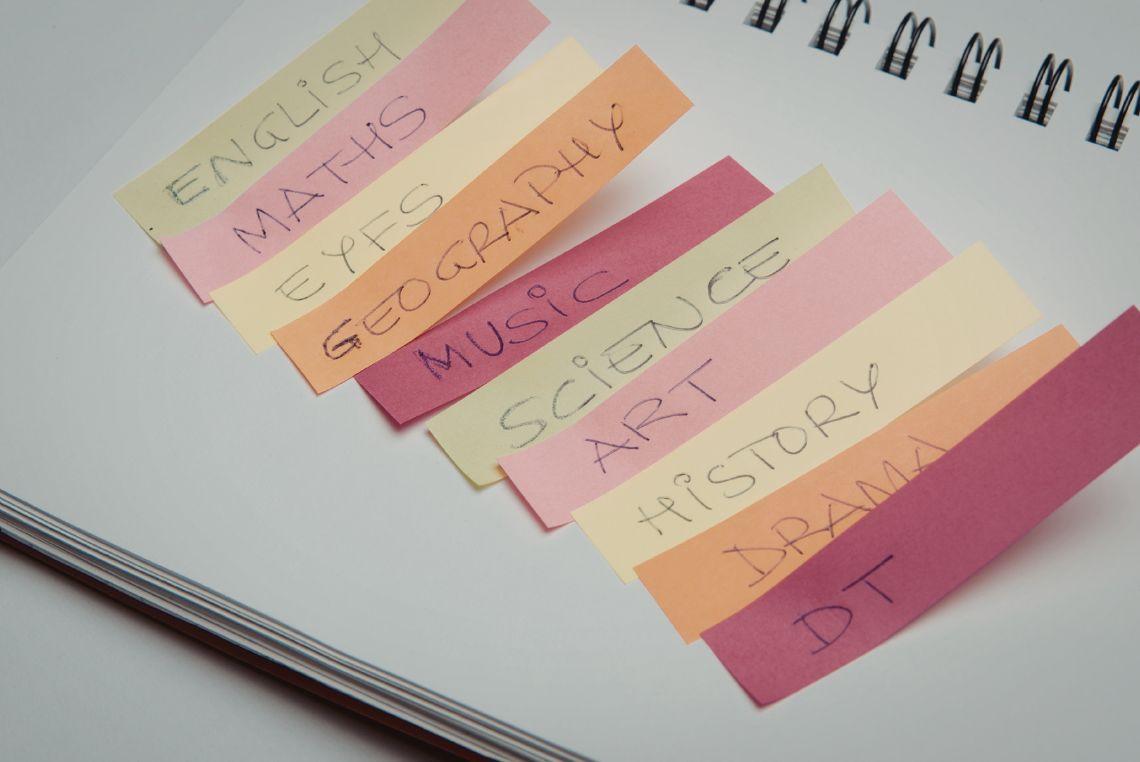 ENGLiSH
MATHS
EYFS
GEOGRAPHY
MUSiC
SCiENCE
ART
HiSTORY
DRAMA
DT